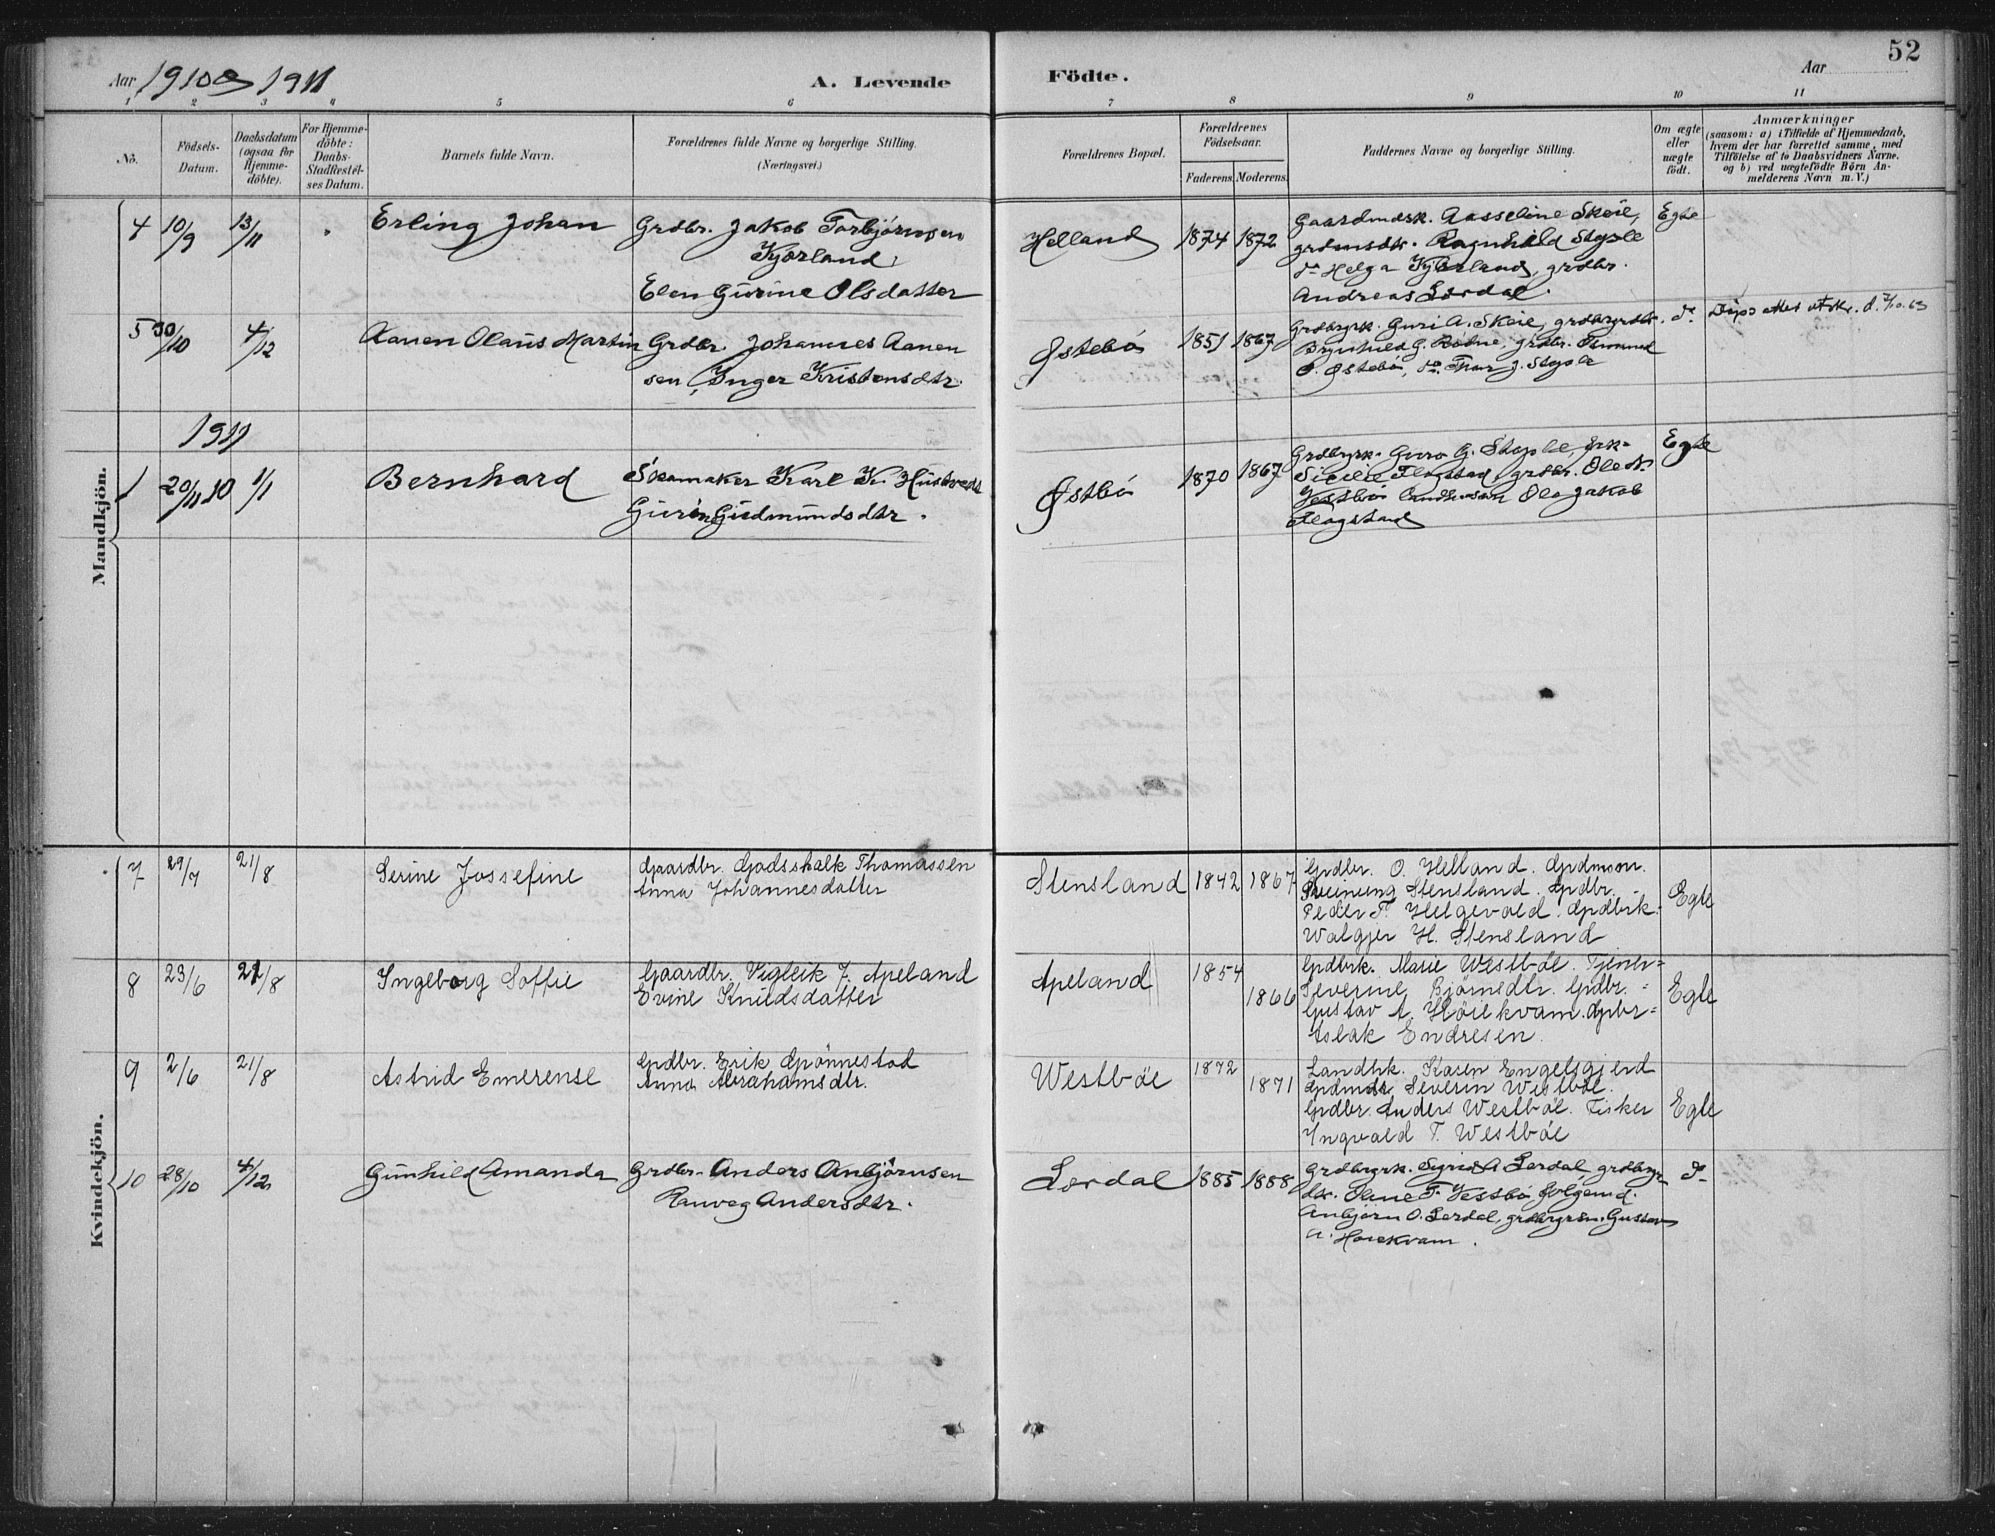 52
Aar 1910 & 1911
A. Levende
Födte.
Aar
1 2 3 4 5 6 7 8 9 10 11
No.
Födsels-
Datum.
Daabsdatum
(ogsaa for
Hjemme-
döbte).
For Hjemme-
döbte:
Daabs-
Stadfæstel-
ses Datum.
Barnets fulde Navn.
Forældrenes fulde Navne og borgerlige Stilling.
(Næringsvei.)
Forældrenes Bopæl.
Forældrenes
Födselsaar.
Faderens. Moderens.
Faddernes Navne og borgerlige Stilling.
Om ægte
eller
uægte
födt.
Anmærkninger
(saasom: a) i Tilfælde af Hjemmedaab,
hvem der har forrettet samme, med
Tilföielse af to Daabsvidners Navne.
og b) ved uægtefödte Börn An-
melderens Navn m. V.)
Mandkjön.
4 10/9 13/11 Erling Johan Grdbr. Jakob Torbjörnsen
Kjörland,
Elen Gurine Olsdatter
Helland 1874 1872 Gaardmdsk. Aasseline Skeie,
grdmsdtr. Ragnhild Stople
do Helga Kjörland, grdbr.
Andreas Lerdal.
Egte
5 30/10 4/12 Aanen Olaus Martin Grdbr. Johannes Aanen
sen, Inger Kristensdtr.
Østebö 1851 1867 Grdbrgrk. Guri A. Skeie, grdbrgrdtr.
Brynhild G. Rödne, grdbr.
O. Østebö, do. Thor J. Stople
do
1911
1 20/11 10 1/1 Bernhard Skomaker Karl K. Hustvedt
Gurine Gudmundsdtr.
Østbö 1870 1867 Grdbrgrk. Guro G. Stople, Erk-
Sicilie Flogstad, grdbr. Ole N.
Vestbö Landhm. Ola Jakob
Flogstad
Egte
Kvindekjön.
7 29/7 21/8 Serine Jossefine Gaardbr. Godsskalk Thomassen
Anna Johannesdatter
Stensland 1842 1867 Grdbr. O. Helland. Grdmsøn.
Stensland. Grdbr.
Peder T. Helgevold. Grdbrk.
Walgjer H. Stensland
Egte
8 23/6 21/8 Ingeborg Soffie Gaardbr. Vigleik J. Apeland
Evine Knudsdatter
Apeland 1854 1866 Grdbrk. Marie Westböe. Tjener-
Severine Bjørnsdtr. Grdbr. -
Gustav A. Høiekvam. Grbr-
Aslak Endresen.
Egte
9 2/6 21/8 Astrid Emerense Grdbr. Erik Grönnestad
Anna Abrahamsdtr.
Westböe 1872 1871 Landhk. Karen Engelsgjerd
Grdmds. Severin Westböe.
Grdbr. Anders Westböe. Fisker
Yngvald T. Westböe
Egte
10 28/10 4/12 Gunhild Amanda Grdbr. Anders Anbjörnsen
Ranveg Andersdtr.
Lerdal 1885 1888 Grdbrgrk. Sigrid A Lerdal, grdbrgr-
dtr. F. Vestbö
Anbjörn O. Lerdal, grdbrgrsn. Gustav
A. Høiekvam.
do